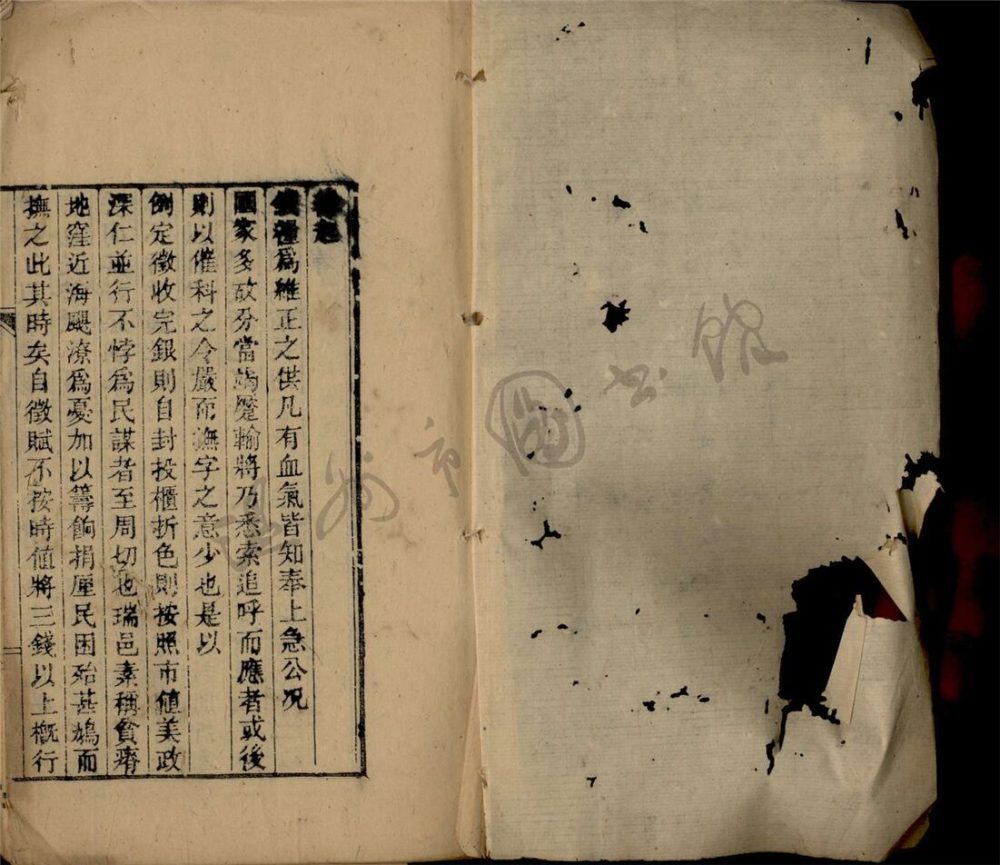 緣起
錢糧爲維正之供凡有血氣皆知奉上急公况
國家多故分當竭蹷輸將乃悉索追呼而應者或後
則以催科之令嚴而撫字之意少也是以
例定徵收完銀則自封投櫃折色則按照市値美政
深仁並行不悖爲民謀者至周切也瑞邑素稱貧瘠
地窪近海颶潦爲憂加以籌餉捐厘民困殆甚鳩而
撫之此其時矣自徵賦不按時値將三錢以上槪行
温州市图书馆